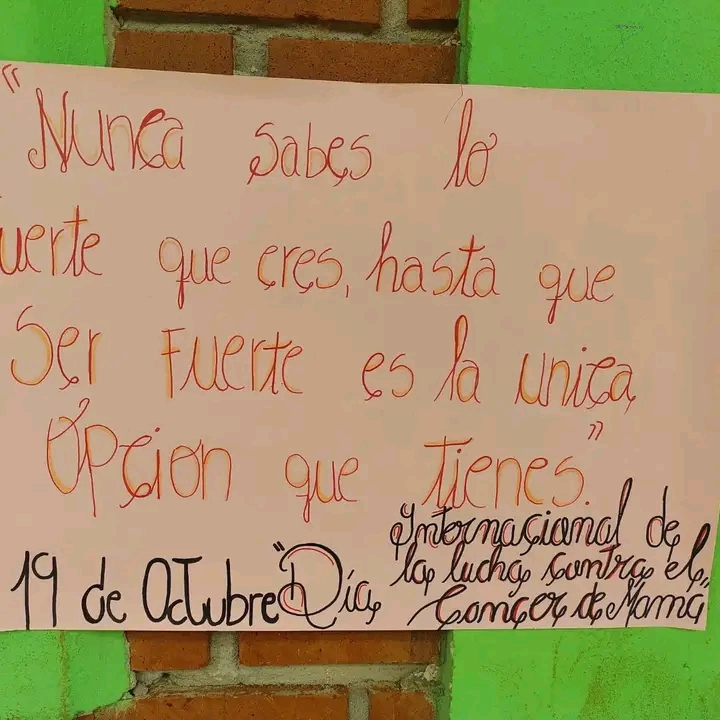 "Nunca sabes lo
uerte que eres, hasta que
Ser Fuerte es la unica
Opcion que tienes"
19 de OcTubre "Día Internacional de
la lucha contra el
Cancer de Mama"